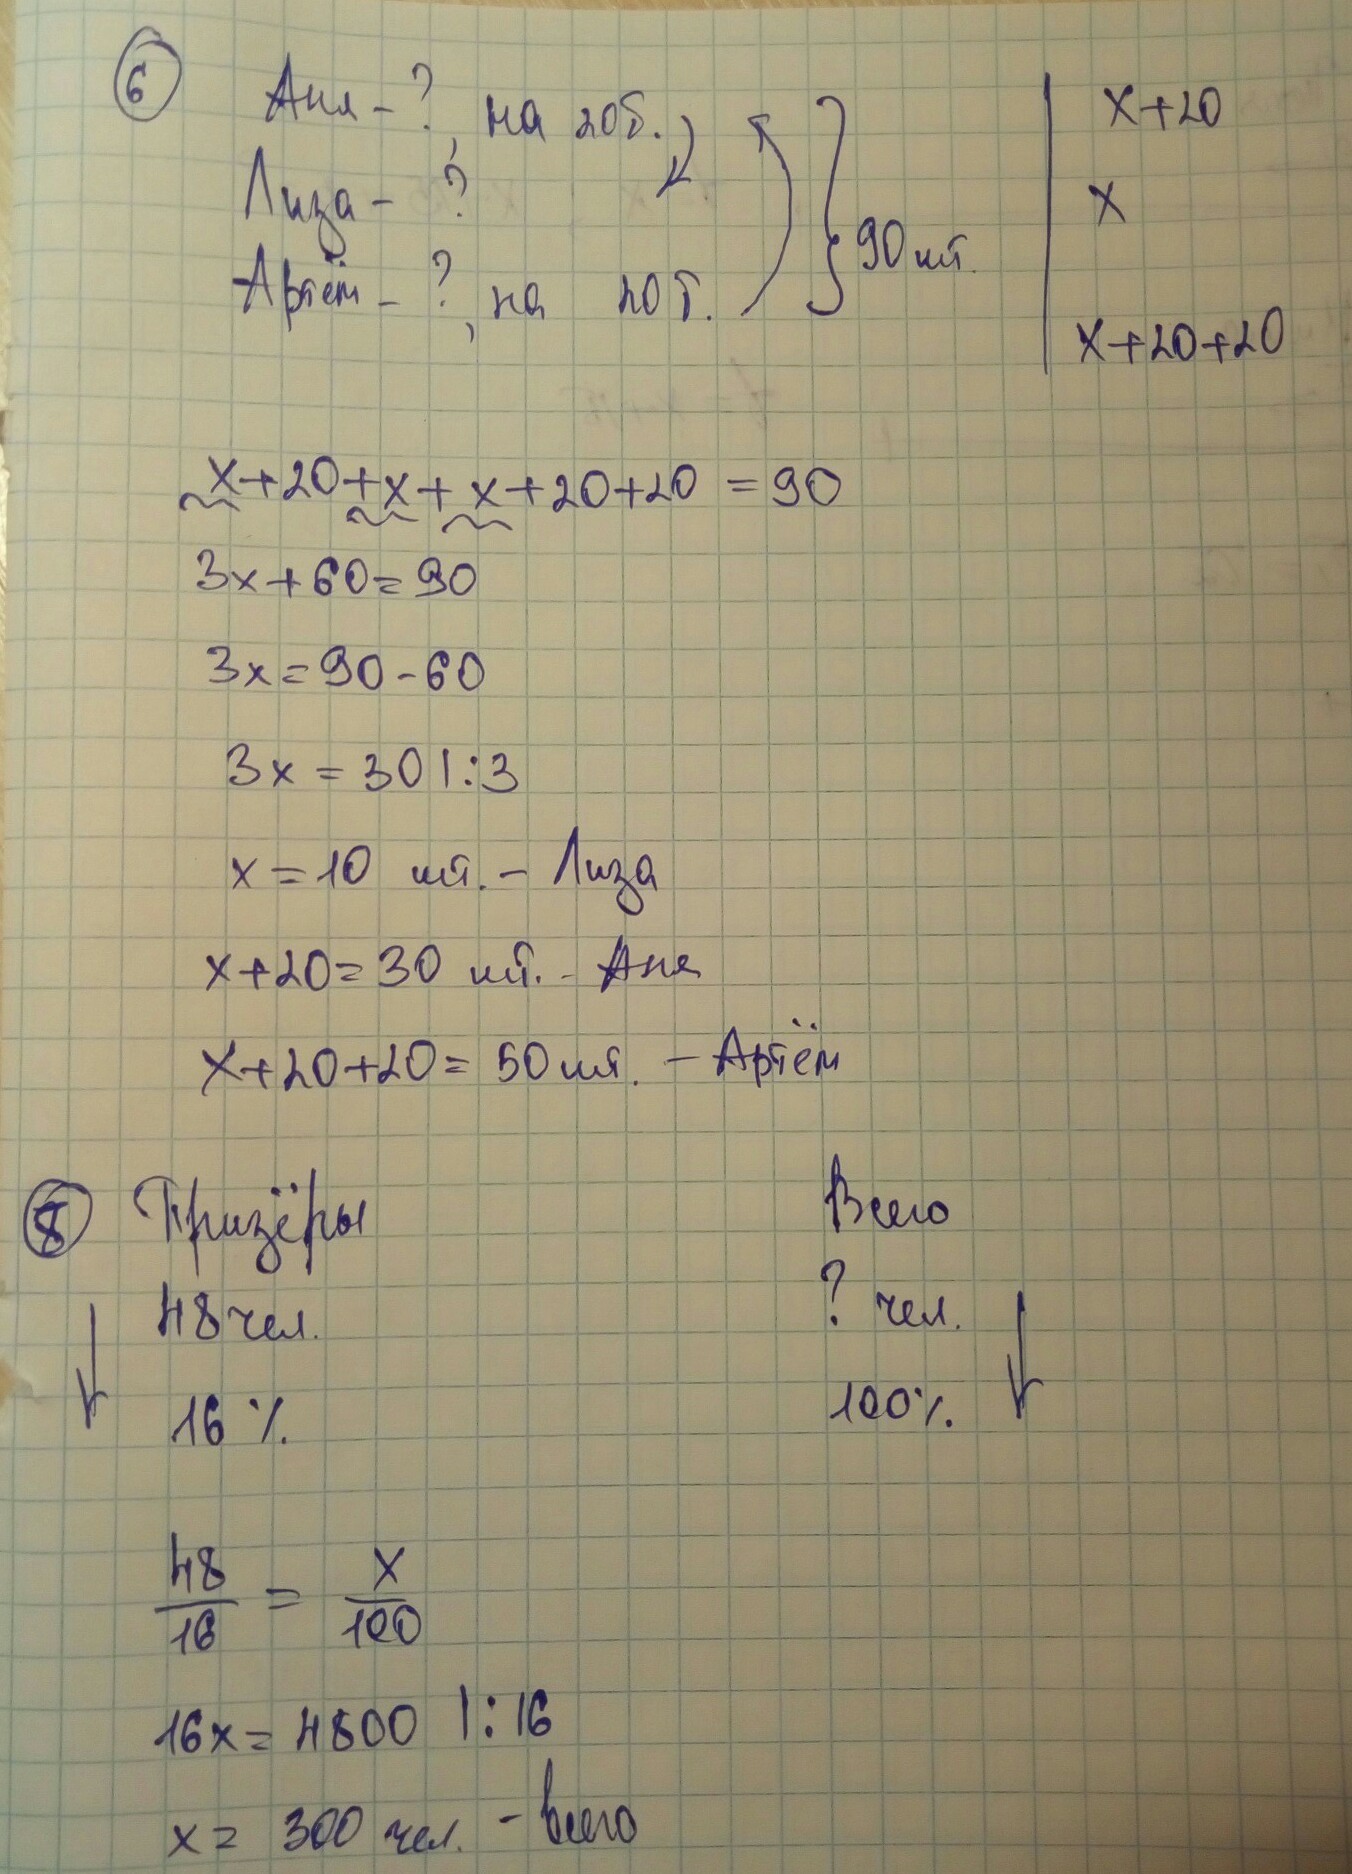 6 Аня - ?, на 20б. x+20
Лиза - ? x
90 шт.
Артём - ?, на 20б. x+20+20
x+20+x+x+20+20 = 90
3x+60=90
3x=90-60
3x = 30 |:3
x=10 шт. - Лиза
x+20=30 шт. - Аня
x+20+20= 50 шт. - Артём
8 Призёры Всего
48 чел. ? чел.
16 % 100%
48/16 = x/100
16x= 4800 |:16
x= 300 чел. - всего